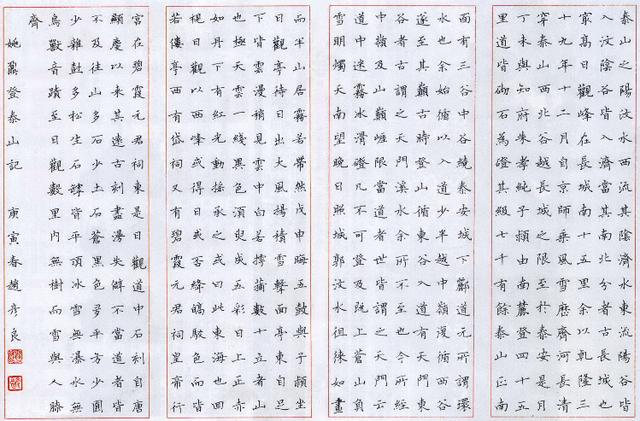 泰山之陽汶水西流其陰濟水東流陽谷皆
入汶陰谷皆入濟當其南北分者古長城也
最高日觀峰在長城南十五里余以乾隆三
十九年十二月自京師乘風雪歷齊河長清
穿泰山西北谷越長城之限至於泰安是月
丁未與知府朱孝純子潁由南麓登四十五
里道皆砌石為磴其級七千有餘泰山正南
面有三谷中谷繞泰安城下酈道元所謂環
水也余始循以入道少半越中嶺復循西谷
遂至其巔古時登山循東谷入道有天門東
谷者古謂之天門溪水余所不至也今所經
中嶺及山巔崖限當道者世皆謂之天門云
道中迷霧冰滑磴幾不可登及既上蒼山負
雪明燭天南望晚日照城郭汶水徂徠如畫
而半山居霧若帶然戊申晦五鼓與子潁坐
日觀亭待日出大風揚積雪擊面亭東自足
下皆雲漫稍見雲中白若摴蒱數十立者山
也極天雲一線異色須臾成五彩日上正赤
如丹下有紅光動搖承之或曰此東海也回
視日觀以西峰或得日或否絳皓駁色而皆
若僂亭西有岱祠又有碧霞元君祠皇帝行
宮在碧霞元君祠東是日觀道中石刻自唐
顯慶以來其遠古刻盡漫失僻不當道者皆
不及往山多石少土石蒼黑色多平方少圜
少雜樹多松生石罅皆平頂冰雪無瀑水無
鳥獸音蹟至日觀數里內無樹而雪與人膝
齊
姚鼐登泰山記 庚寅春趙彥良